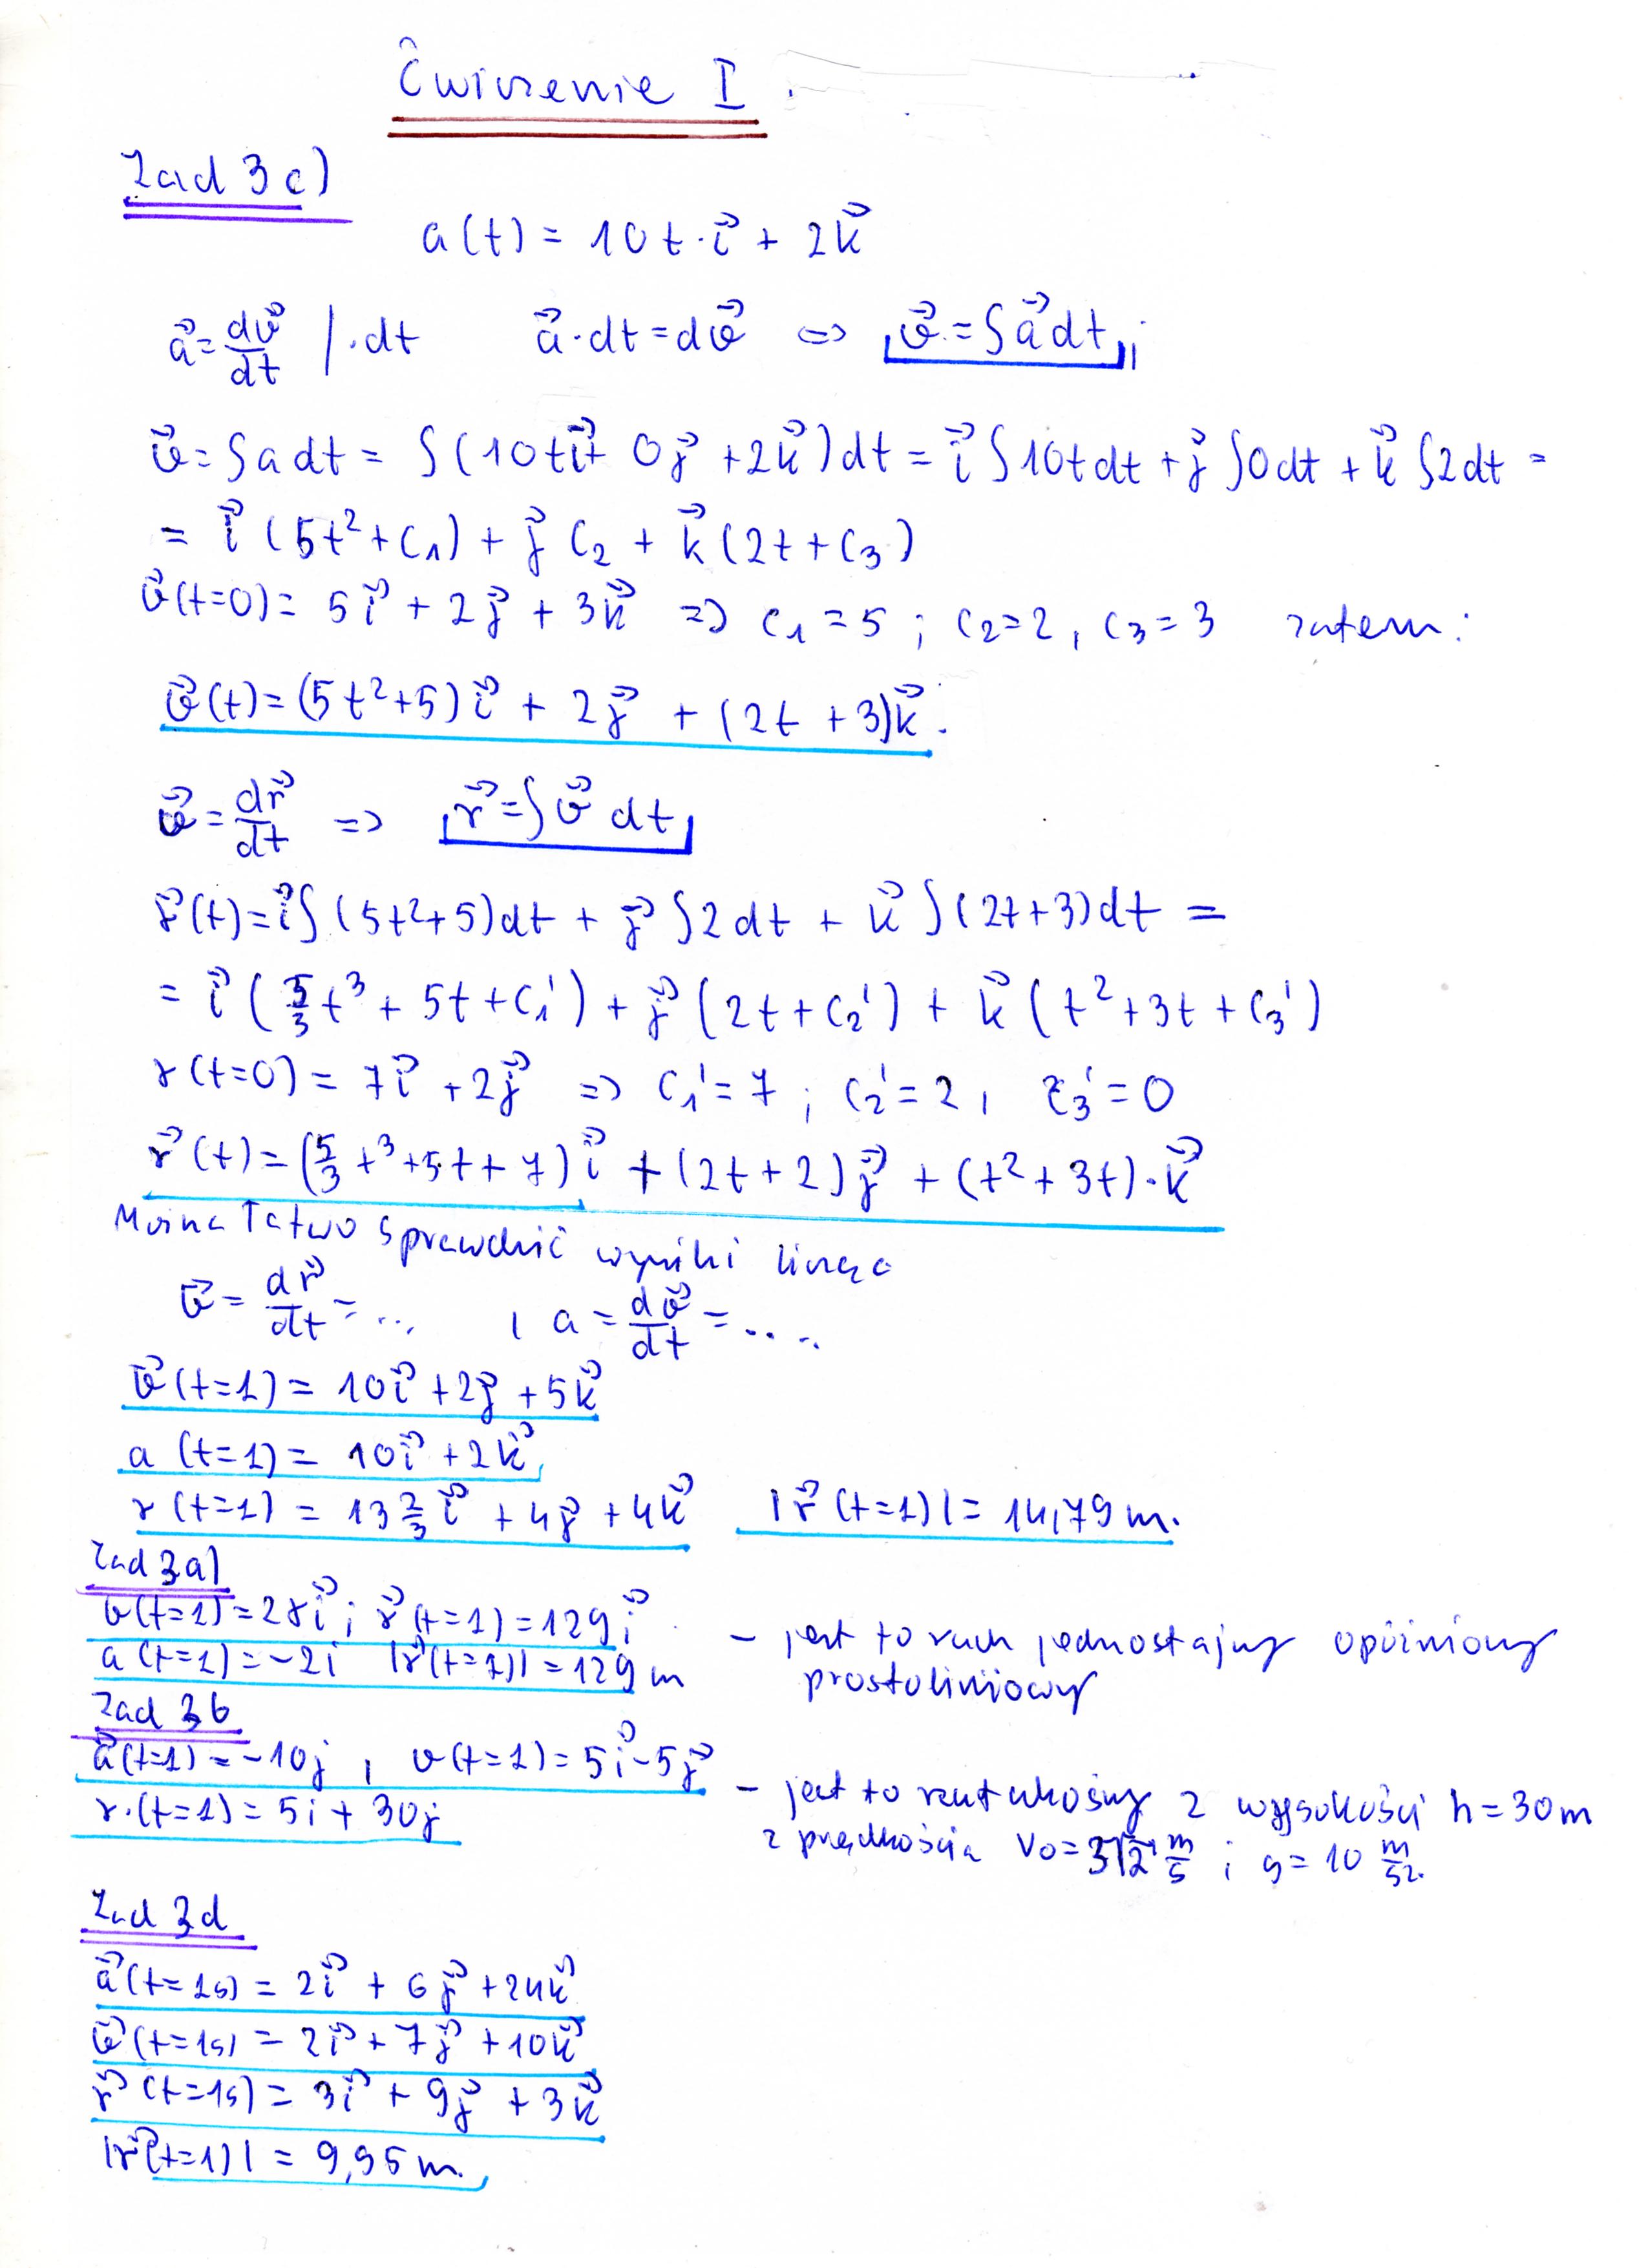 Ćwiczenie I.
Zad 3c)
a(t) = 10t·i⃗ + 2k⃗
a⃗ = dv⃗/dt |·dt a⃗·dt = dv⃗ ⇔ v⃗ = ∫a⃗dt;
v⃗ = ∫a dt = ∫(10ti⃗ + 0j⃗ + 2k⃗)dt = i⃗∫10tdt + j⃗∫0dt + k⃗∫2dt =
= i⃗(5t²+C₁) + j⃗C₂ + k⃗(2t+C₃)
v⃗(t=0) = 5i⃗ + 2j⃗ + 3k⃗ => C₁=5; C₂=2, C₃=3 zatem:
v⃗(t) = (5t²+5)i⃗ + 2j⃗ + (2t+3)k⃗.
v⃗ = dr⃗/dt => r⃗ = ∫v⃗ dt
r⃗(t) = i⃗∫(5t²+5)dt + j⃗∫2dt + k⃗∫(2t+3)dt =
= i⃗(5/3 t³ + 5t + C₁') + j⃗(2t+C₂') + k⃗(t²+3t+C₃')
r(t=0) = 7i⃗ + 2j⃗ => C₁'=7; C₂'=2, C₃'=0
r⃗(t) = (5/3 t³+5t+7)i⃗ + (2t+2)j⃗ + (t²+3t)·k⃗
Można łatwo sprawdzić wyniki licząc
v⃗ = dr⃗/dt = ... , a = dv⃗/dt = ....
v⃗(t=1) = 10i⃗ + 2j⃗ + 5k⃗
a(t=1) = 10i⃗ + 2k⃗,
r(t=1) = 13 2/3 i⃗ + 4j⃗ + 4k⃗ |r⃗(t=1)| = 14,79m.
Zad 3a)
v(t=1) = 28i⃗; r⃗(t=1) = 129i⃗
a(t=1) = -2i |r⃗(t=1)| = 129m
- jest to ruch jednostajny opóźniony
prostoliniowy
Zad 3b
a⃗(t=1) = -10j, v(t=1) = 5i⃗ - 5j⃗
r.(t=1) = 5i + 30j
- jest to rzut ukośny z wysokości h=30m
z prędkością V₀=3√2 m/s i g=10 m/s².
Zad 3d
a⃗(t=1s) = 2i⃗ + 6j⃗ + 24k⃗
v⃗(t=1s) = 2i⃗ + 7j⃗ + 10k⃗
r⃗(t=1s) = 3i⃗ + 9j⃗ + 3k⃗
|r⃗(t=1)| = 9,95m.